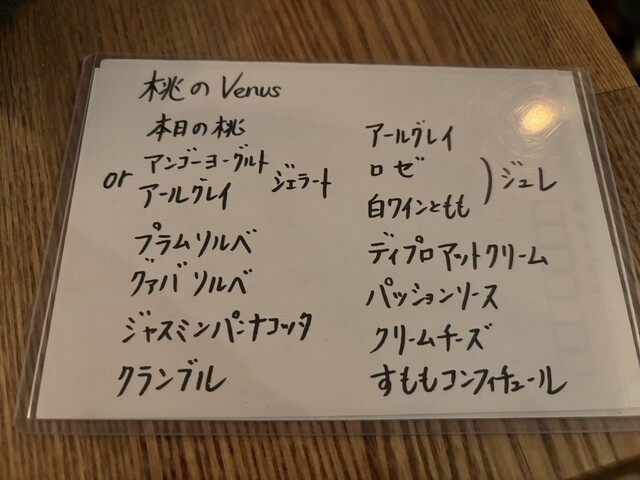 桃のVenus
本日の桃
or アンゴーヨーグルト
アールグレイ
ジェラート
プラムソルベ
グァバソルベ
ジャスミンパンナコッタ
クランブル
アールグレイ
ロゼ
白ワインともも
)ジュレ
ディプロアットクリーム
パッションソース
クリームチーズ
すももコンフィチュール